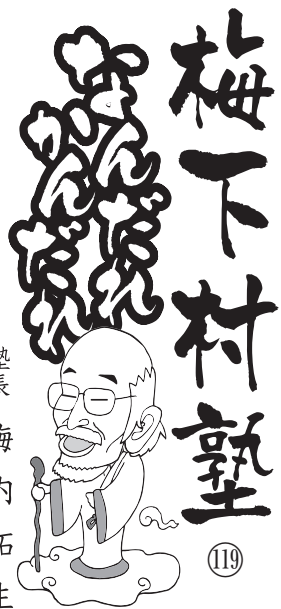 梅下村塾
119
なんだれ
かんだれ
塾長 梅内拓生